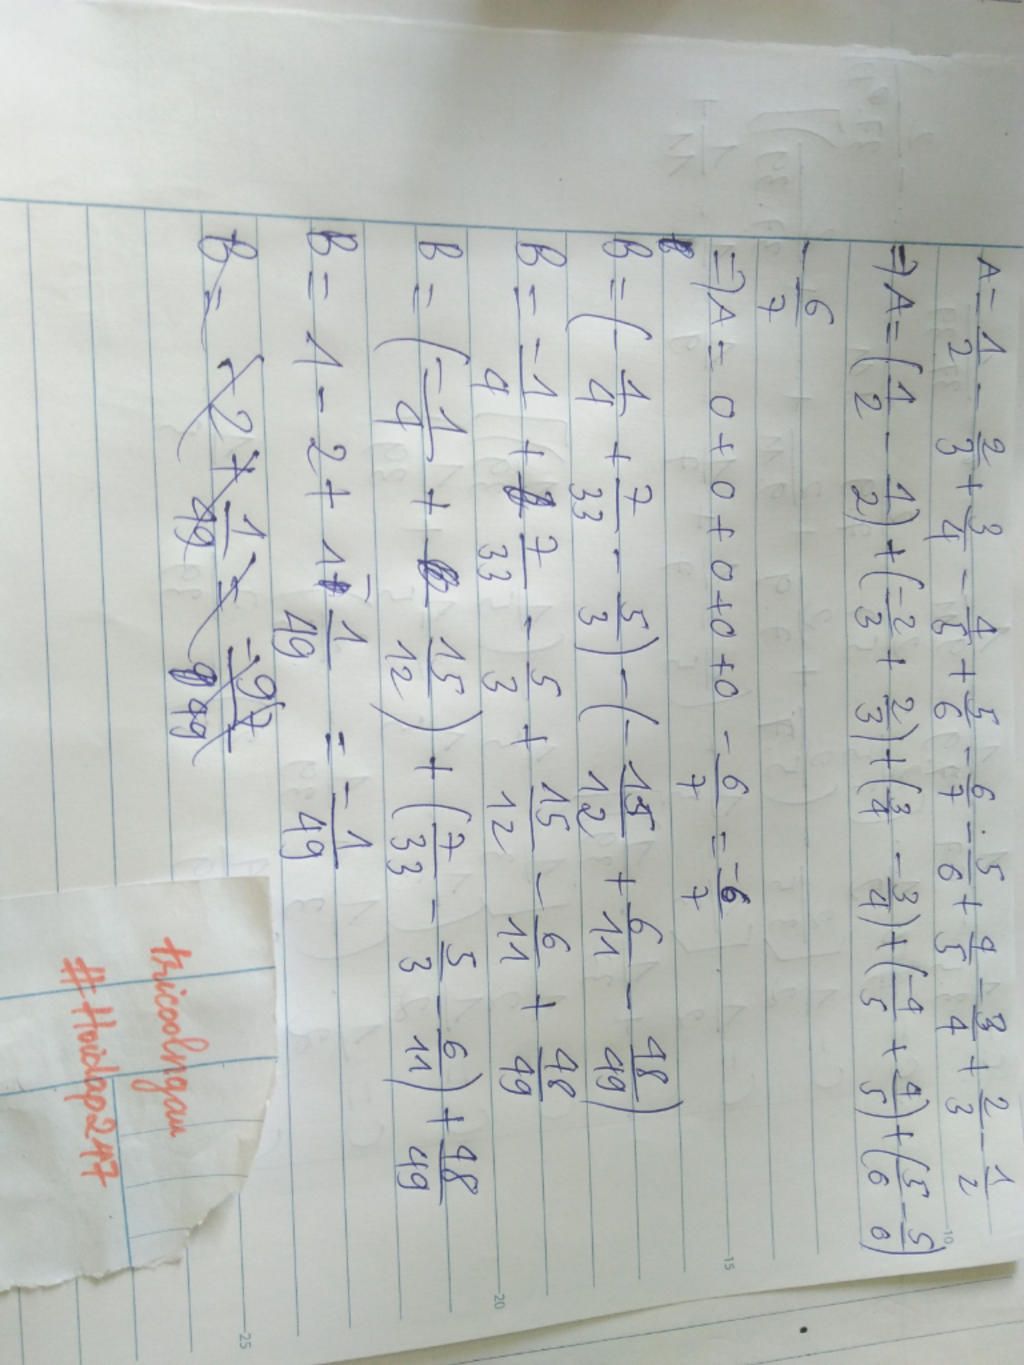 A = 1/2 - 2/3 + 3/4 - 4/5 + 5/6 - 6/7 - 5/6 + 4/5 - 3/4 + 2/3 - 1/2
=> A = (1/2 - 1/2) + (-2/3 + 2/3) + (3/4 - 3/4) + (-4/5 + 4/5) + (5/6 - 5/6)
- 6/7
=> A = 0 + 0 + 0 + 0 + 0 - 6/7 = -6/7
B = (-1/4 + 7/33 - 5/3) - (-15/12 + 6/11 - 48/49)
B = -1/4 + 7/33 - 5/3 + 15/12 - 6/11 + 48/49
B = (-1/4 + 15/12) + (7/33 - 5/3 - 6/11) + 48/49
B = 1 - 2 + 1 - 1/49 = -1/49
B = -2 + 1/49 = -97/49
tricoolngau
#Hoidap247
10
15
20
25